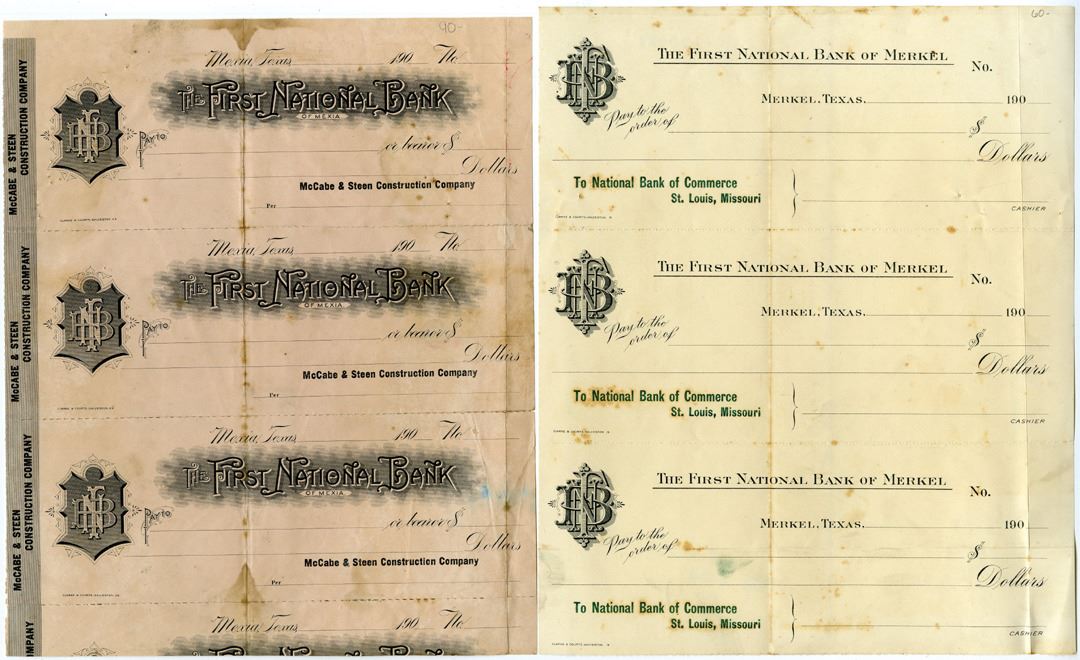 90-
McCABE & STEEN
CONSTRUCTION COMPANY
Mexia, Texas 190 No
THE FIRST NATIONAL BANK
OF MEXIA
FNB
PAY TO
or bearer $
Dollars
McCabe & Steen Construction Company
Per
CLARKE & COURTS, GALVESTON
McCABE & STEEN
CONSTRUCTION COMPANY
Mexia, Texas 190 No
THE FIRST NATIONAL BANK
OF MEXIA
FNB
PAY TO
or bearer $
Dollars
McCabe & Steen Construction Company
Per
CLARKE & COURTS, GALVESTON
McCABE & STEEN
CONSTRUCTION COMPANY
Mexia, Texas 190 No
THE FIRST NATIONAL BANK
OF MEXIA
FNB
PAY TO
or bearer $
Dollars
McCabe & Steen Construction Company
Per
CLARKE & COURTS, GALVESTON
MPANY
Mexia, Texas 190 No
THE FIRST NATIONAL BANK
60-
THE FIRST NATIONAL BANK OF MERKEL
No.
FNB
MERKEL, TEXAS, 190
Pay to the
order of
$
Dollars
To National Bank of Commerce
St. Louis, Missouri
CASHIER
CLARKE & COURTS, GALVESTON
THE FIRST NATIONAL BANK OF MERKEL
No.
FNB
MERKEL, TEXAS, 190
Pay to the
order of
$
Dollars
To National Bank of Commerce
St. Louis, Missouri
CASHIER
CLARKE & COURTS, GALVESTON
THE FIRST NATIONAL BANK OF MERKEL
No.
FNB
MERKEL, TEXAS, 190
Pay to the
order of
$
Dollars
To National Bank of Commerce
St. Louis, Missouri
CASHIER
CLARKE & COURTS, GALVESTON